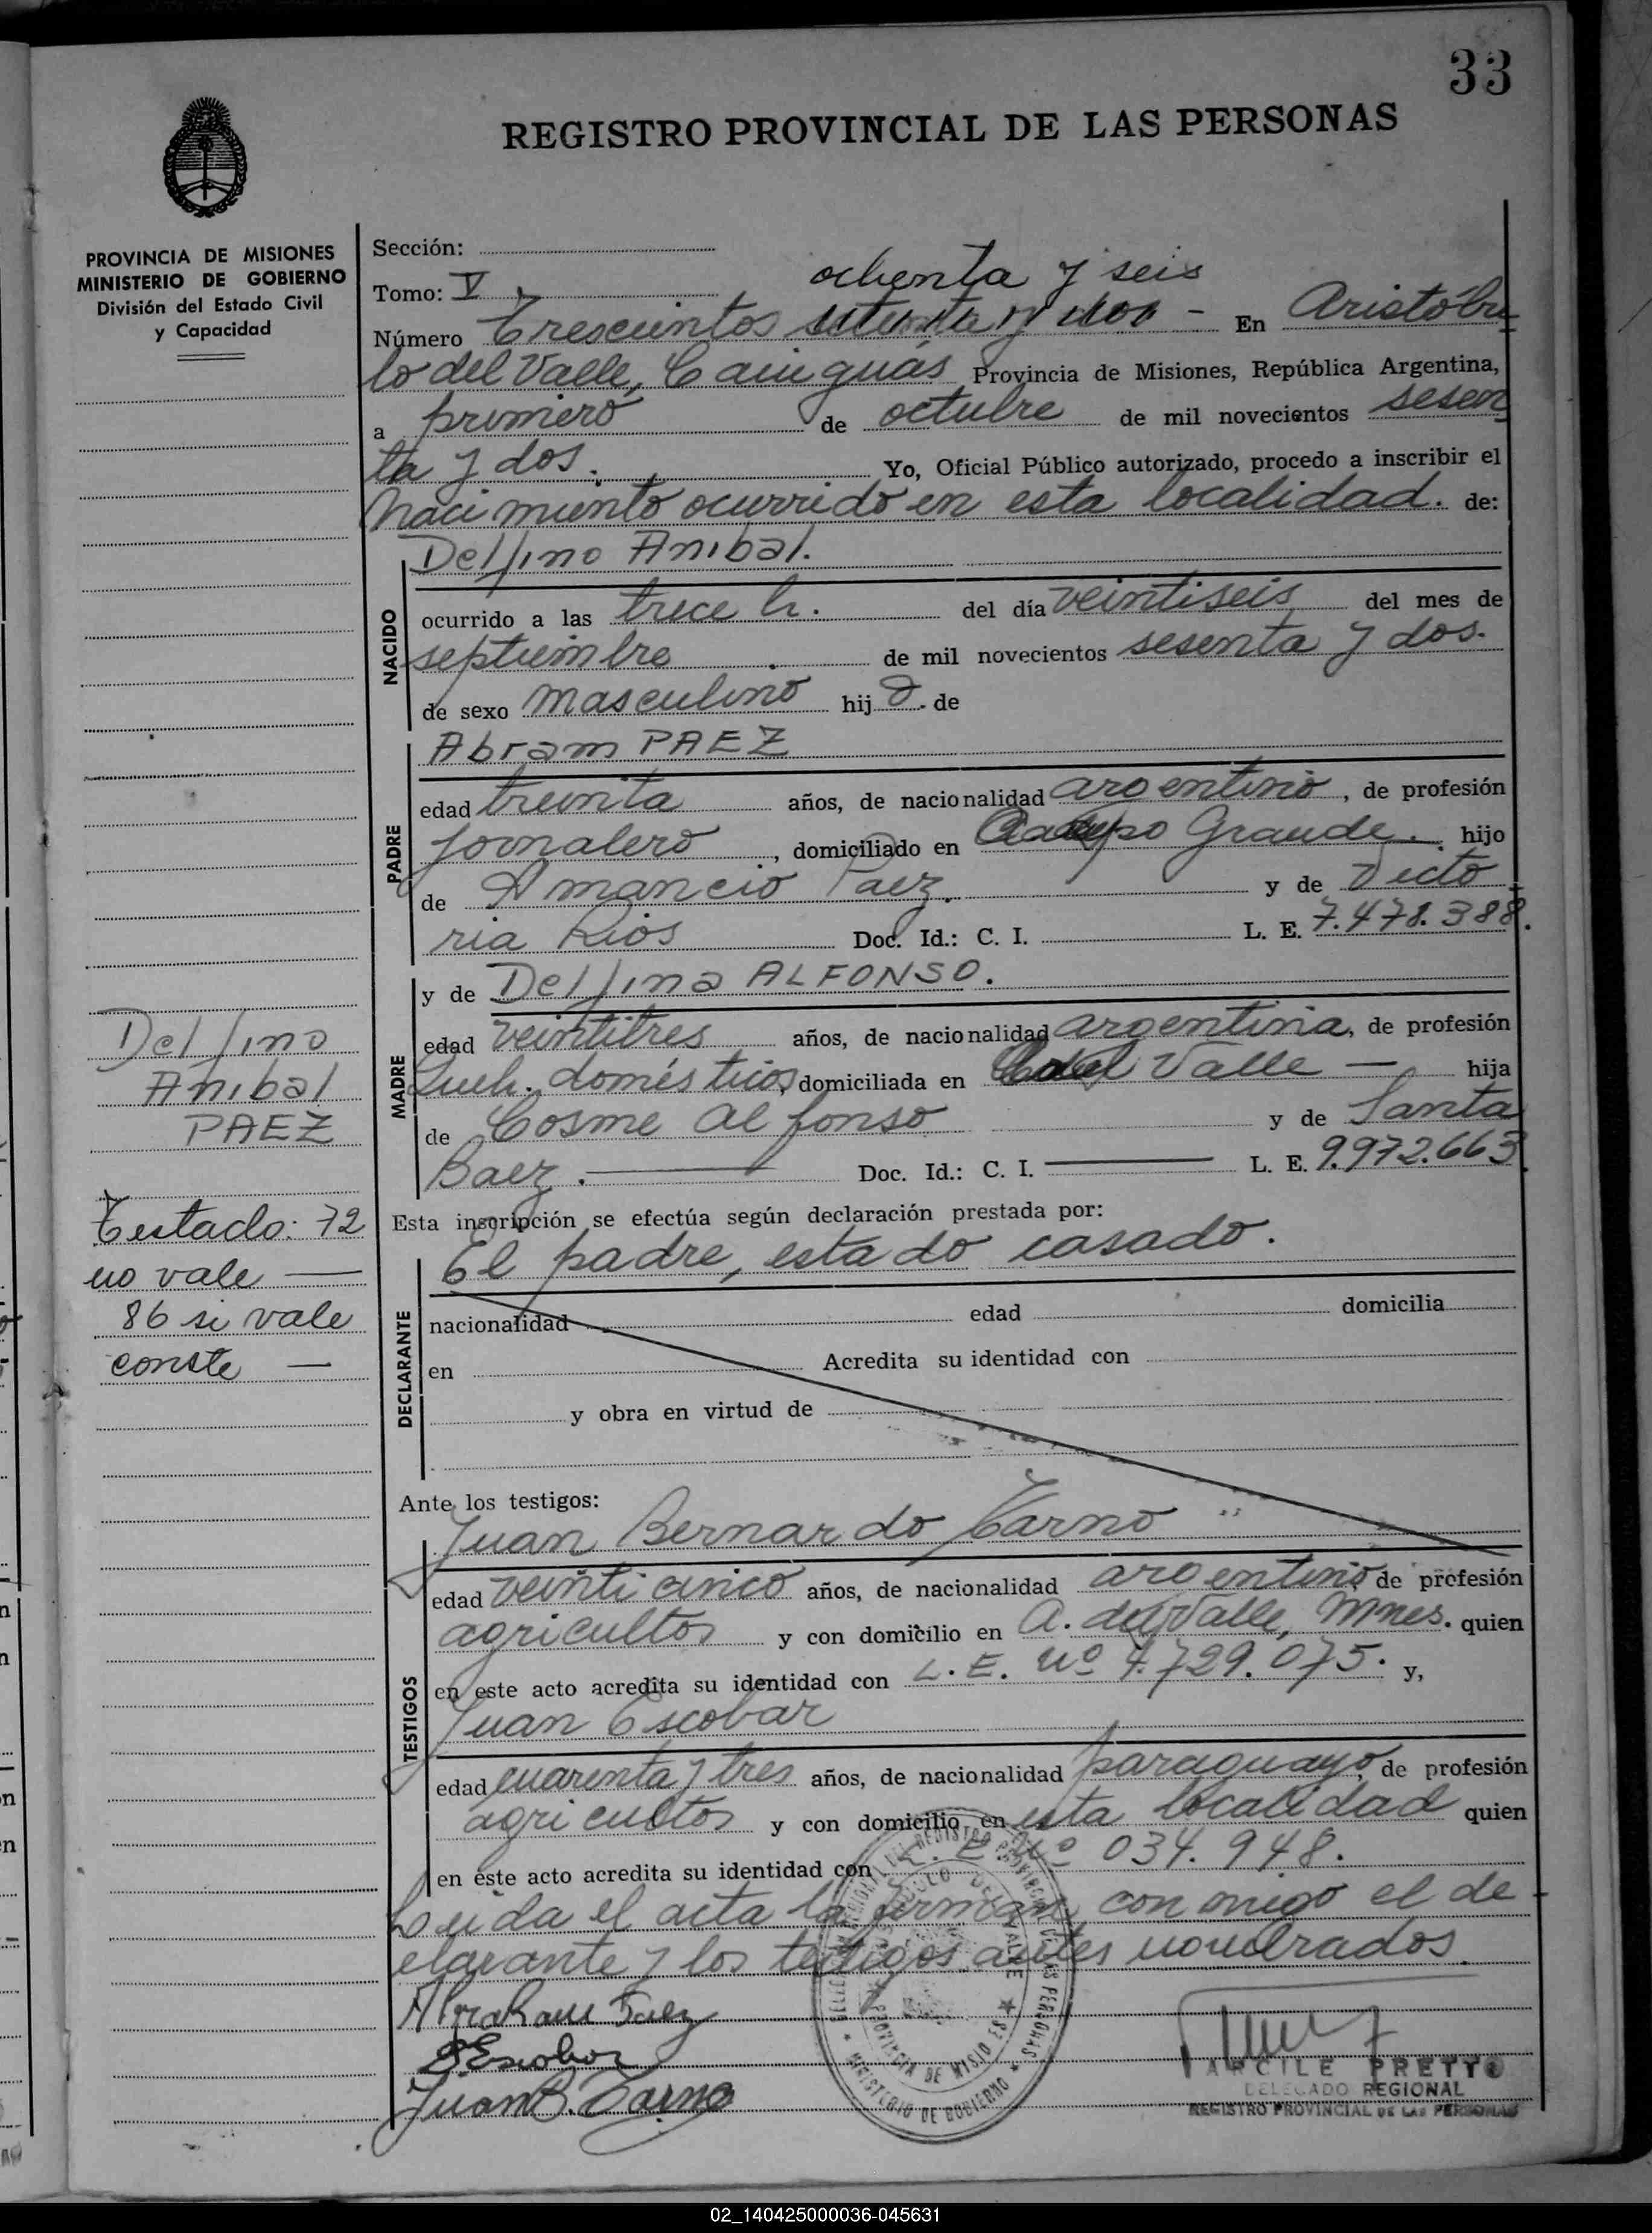 33
REGISTRO PROVINCIAL DE LAS PERSONAS
PROVINCIA DE MISIONES
MINISTERIO DE GOBIERNO
División del Estado Civil
y Capacidad
Sección:
Tomo: V
ochenta y seis
Número Trescientos setenta y dos - En Aristóbu
lo del Valle, Cainguás Provincia de Misiones, República Argentina,
a primero de octubre de mil novecientos sesen
ta y dos. Yo, Oficial Público autorizado, procedo a inscribir el
Nacimiento ocurrido en esta localidad. de:
NACIDO
Delfino Anibal.
ocurrido a las trece h. del día veintiseis del mes de
septiembre de mil novecientos sesenta y dos.
de sexo masculino hijo de
PADRE
Abram PAEZ
edad treinta años, de nacionalidad argentino, de profesión
jornalero, domiciliado en Campo Grande. hijo
de Amancio Paez. y de Victo
ria Rios Doc. Id.: C. I. L. E. 7.478.388.
MADRE
y de Delfina ALFONSO.
edad veintitres años, de nacionalidad argentina, de profesión
Queh. domésticos, domiciliada en del Valle — hija
de Cosme Alfonso y de Santa
Baez. — Doc. Id.: C. I. — L. E. 9.972.663
Delfino
Anibal
PAEZ
Testado: 72
no vale —
86 si vale
conste —
Esta inscripción se efectúa según declaración prestada por:
DECLARANTE
El padre, estado casado.
nacionalidad edad domicilia
en Acredita su identidad con
y obra en virtud de
Ante los testigos:
TESTIGOS
Juan Bernardo Tarno
edad veinticinco años, de nacionalidad argentino, de profesión
agricultor y con domicilio en A. del Valle, Mnes. quien
en este acto acredita su identidad con L. E. Nº 4.729.075. y,
Juan Escobar
edad cuarenta y tres años, de nacionalidad paraguayo, de profesión
agricultor y con domicilio en esta localidad quien
en este acto acredita su identidad con Nº 034.948.
Leida el acta la firman conmigo el de-
clarante y los testigos antes nombrados.
Abraham Paez
Escobar
Juan B. Tarno
ARCILE PRETTO
DELEGADO REGIONAL
REGISTRO PROVINCIAL DE LAS PERSONAS
REGISTRO PROVINCIAL DE LAS PERSONAS
MINISTERIO DE GOBIERNO
DEL VALLE
PROVINCIA DE MISIO
02_140425000036-045631